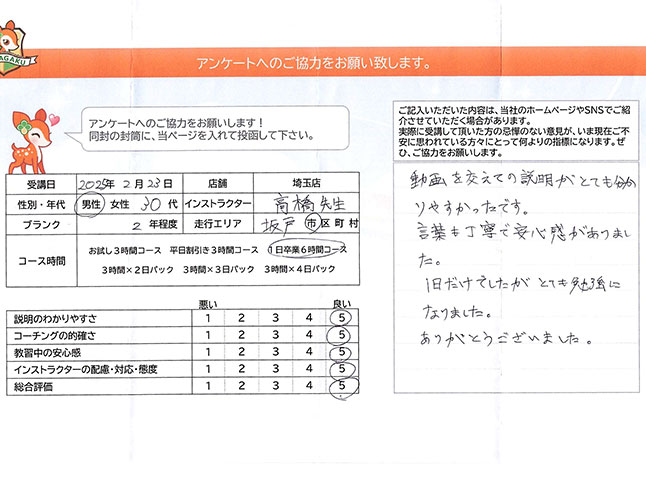 AGAKU
アンケートへのご協力をお願い致します。
アンケートへのご協力をお願いします！
同封の封筒に、当ページを入れて投函して下さい。
ご記入いただいた内容は、当社のホームページやSNSでご紹
介させていただく場合があります。
実際に受講して頂いた方の忌憚のない意見が、いま現在ご不
安に思われている方々にとって何よりの指標になります。ぜ
ひ、ご協力をお願いします。
受講日 2025年 2月 23日 店舗 埼玉店
性別・年代 男性 女性 30代 インストラクター 高橋先生
ブランク 2年程度 走行エリア 坂戸 市区町村
コース時間 お試し3時間コース 平日割引き3時間コース 1日卒業6時間コース
3時間×2日パック 3時間×3日パック 3時間×4日パック
悪い 良い
説明のわかりやすさ 1 2 3 4 5
コーチングの的確さ 1 2 3 4 5
教習中の安心感 1 2 3 4 5
インストラクターの配慮・対応・態度 1 2 3 4 5
総合評価 1 2 3 4 5
動画を交えての説明がとても分か
りやすかったです。
言葉も丁寧で安心感がありまし
た。
1日だけでしたがとても勉強に
なりました。
ありがとうございました。